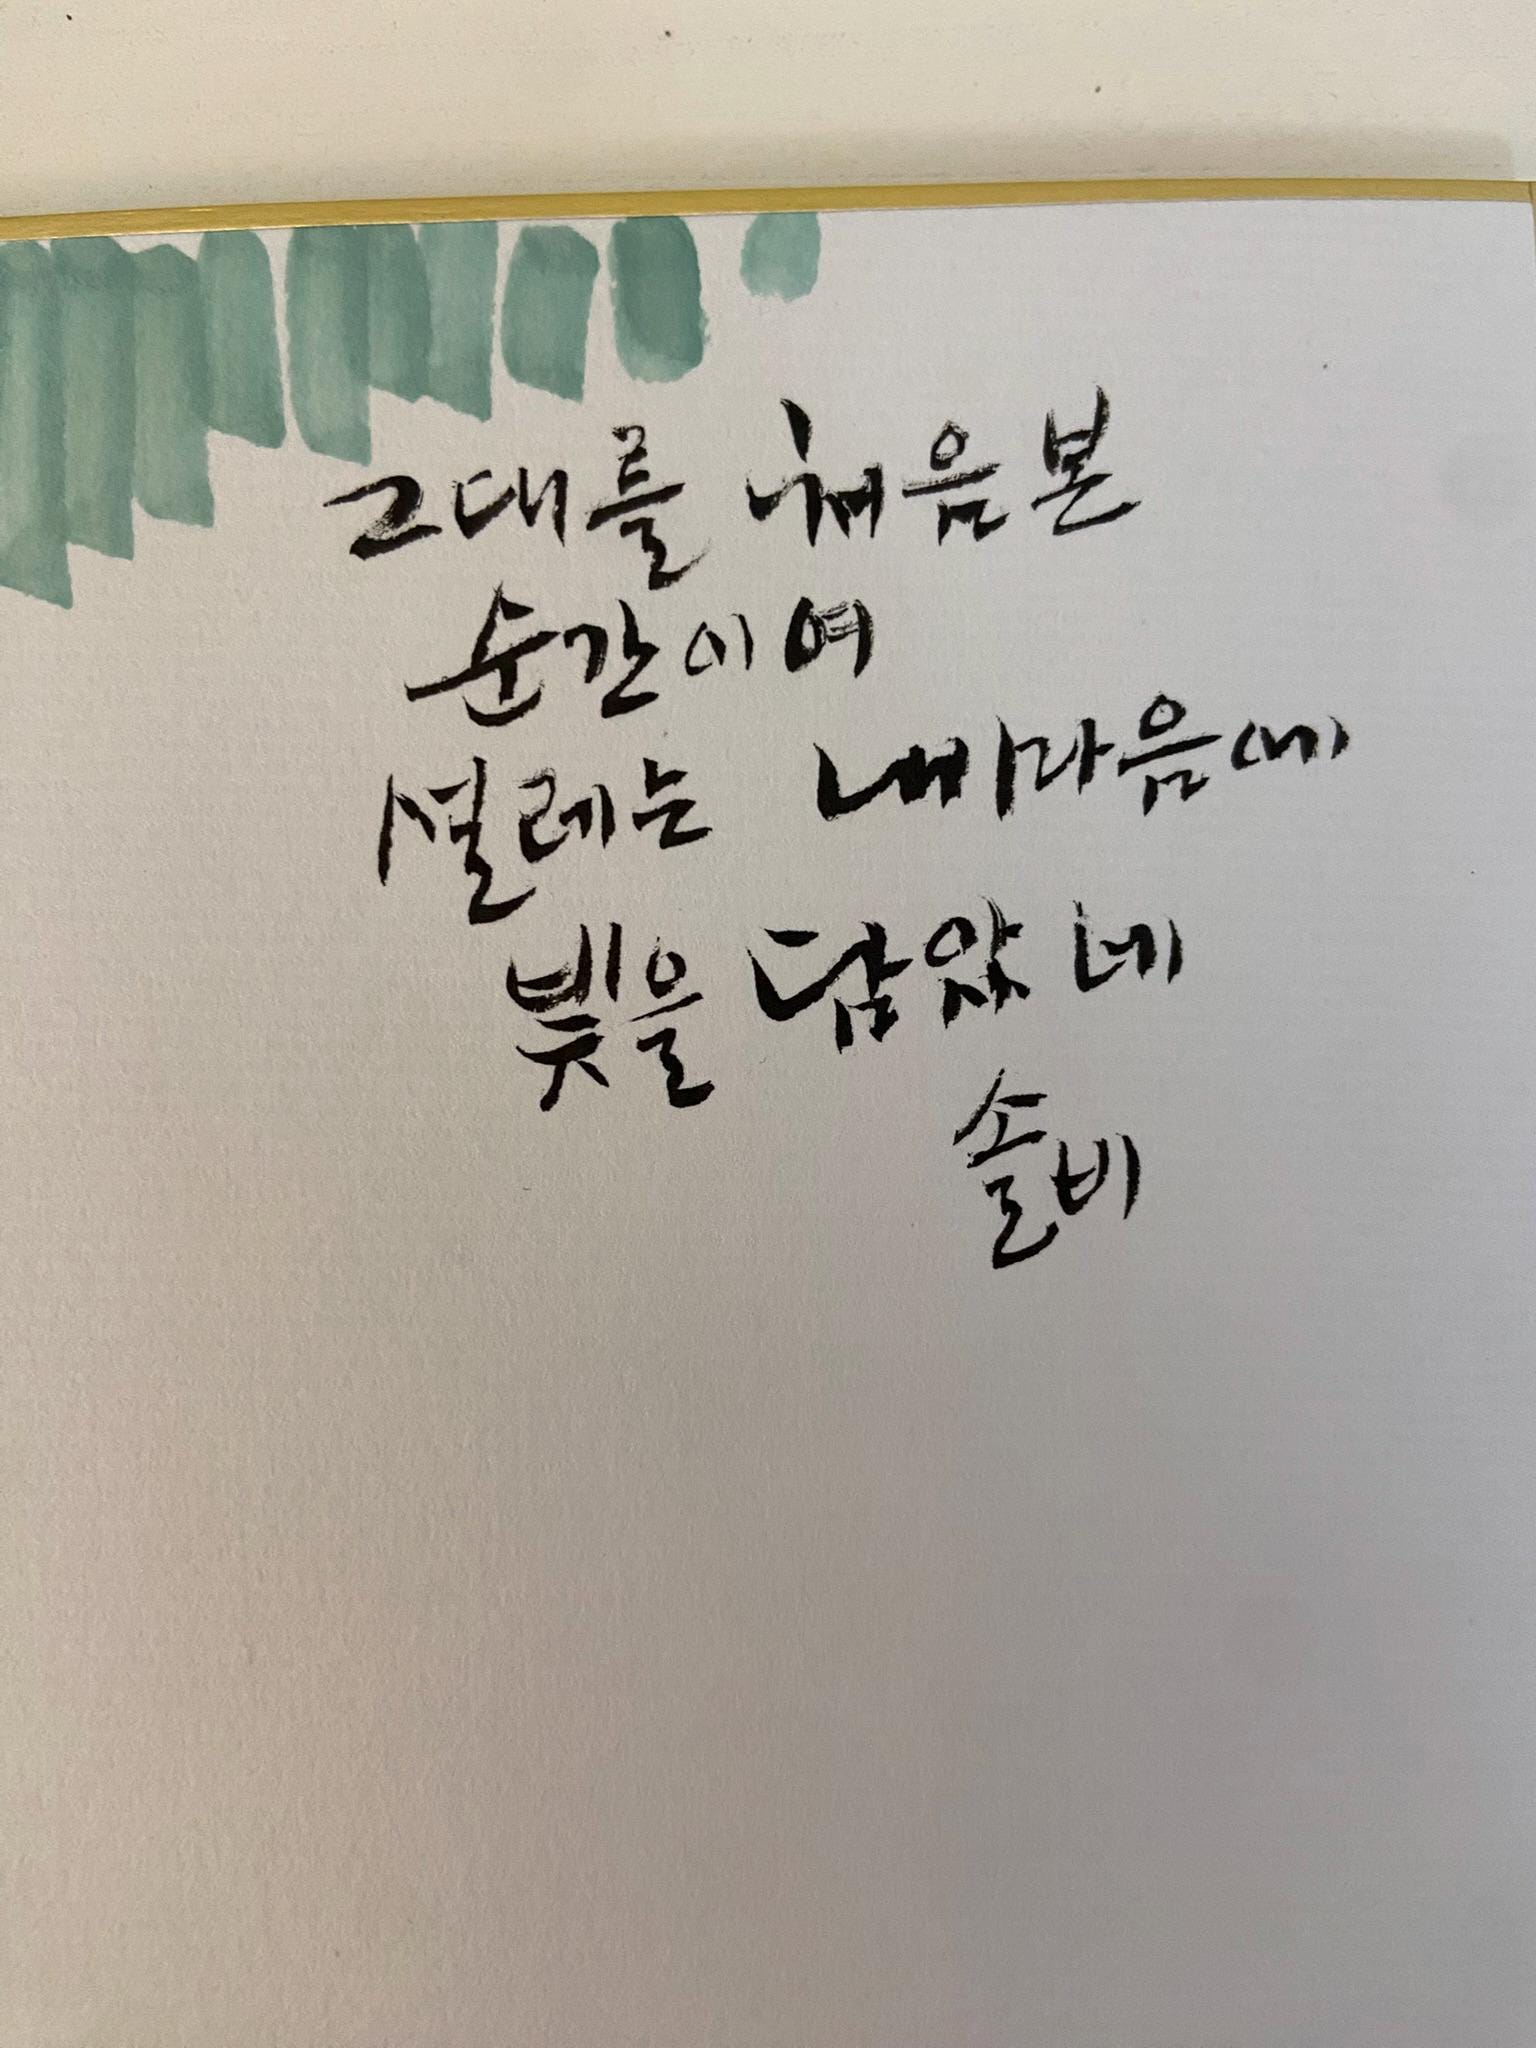 그대를 처음 본
순간이여
설레는 내마음에
빛을 담았네
솔비